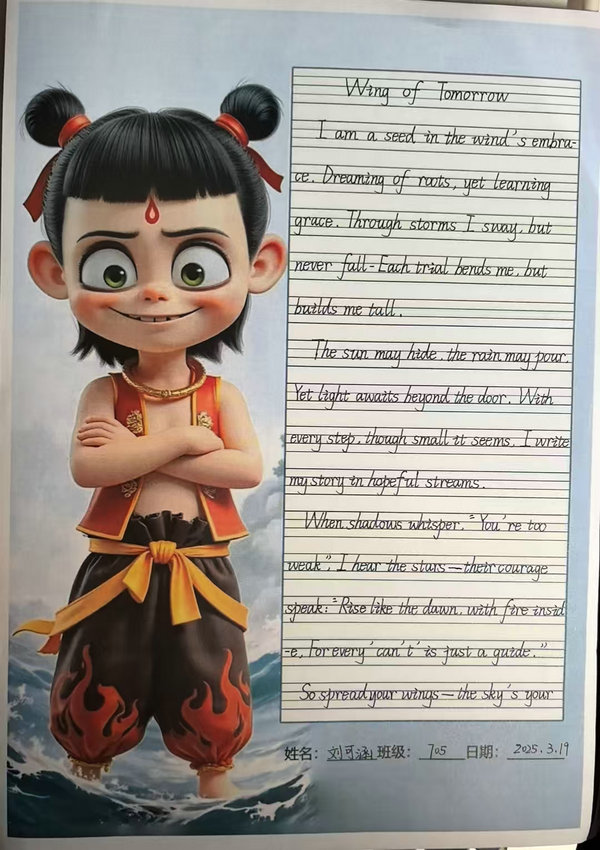 Wing of Tomorrow
I am a seed in the wind's embra-
ce. Dreaming of roots, yet learning
grace. Through storms I sway, but
never fall-Each trial bends me, but
builds me tall.
The sun may hide, the rain may pour.
Yet light awaits beyond the door. With
every step, though small it seems, I write
my story in hopeful streams.
When shadows whisper, "You're too
weak", I hear the stars—their courage
speak: "Rise like the dawn, with fire insid
-e, For every 'can't' is just a guide."
So spread your wings—the sky's your
姓名: 刘可涵 班级: 705 日期: 2025.3.19